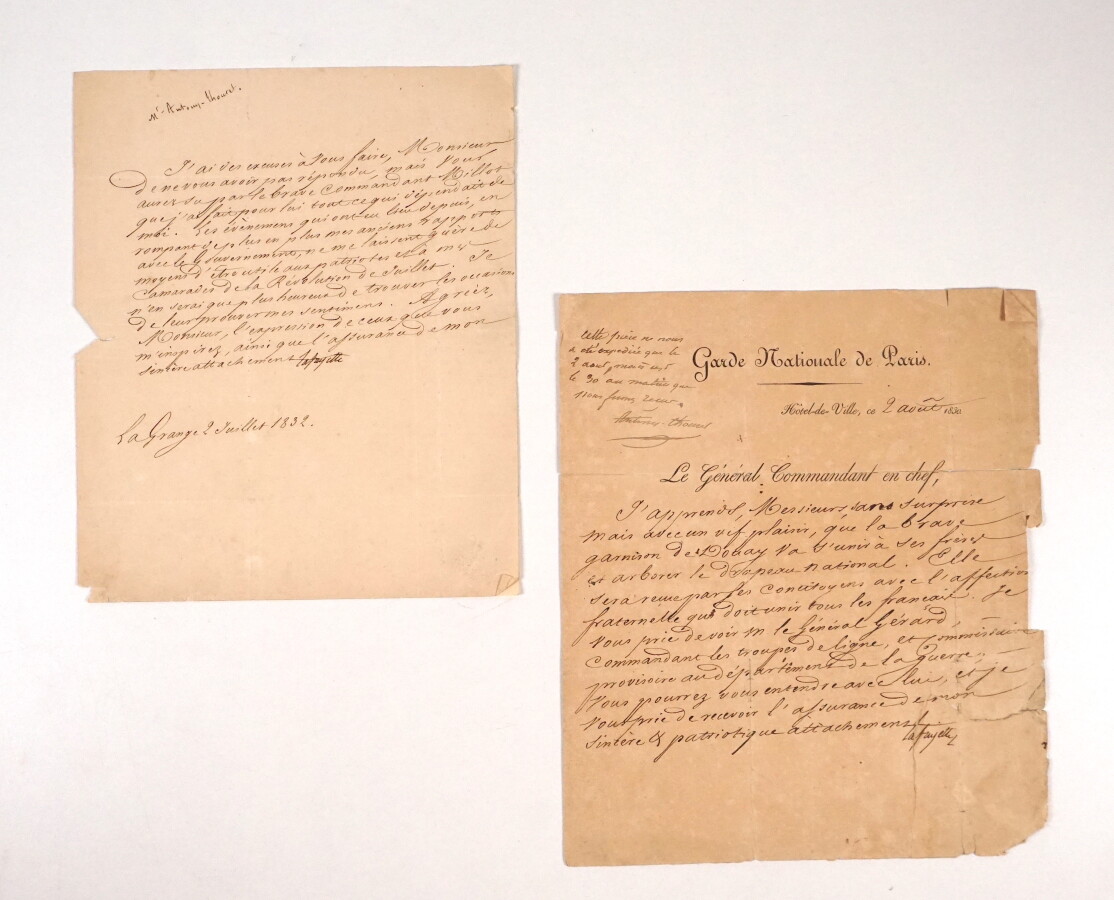 Mr Antony-Thouret.
J'ai des excuses à vous faire, Monsieur
de ne vous avoir pas répondu, mais vous
aurez su par le brave Commandant Millot
que j'ai fait pour lui tout ce qui dépendait de
moi. Les évènemens qui ont eu lieu depuis, en
rompant de plus en plus mes anciens rapports
avec le Gouvernement, ne me laissent guère de
moyens d'être utile aux patriotes et à mes
Camarades de la Révolution de Juillet. Je
n'en serai que plus heureux de trouver les occasions
de leur prouver mes sentimens. Agréez,
Monsieur, l'expression de ceux que vous
m'inspirez, ainsi que l'assurance de mon
sincère attachement Lafayette
La Grange 2 Juillet 1832.
Cette pièce ne nous
a été expédiée que le
2 aout, mais
le 30 au matin que
nous fumes
Antony-Thouret
Garde Nationale de Paris.
Hôtel-de-Ville, ce 2 août 1830
Le Général Commandant en chef,
J'apprends, Messieurs sans surprise
mais avec un vif plaisir, que la brave
garnison de Douay va s'unir à ses frères
et arborer le drapeau national. Elle
sera reçue par ses concitoyens avec l'affection
fraternelle qui doit unir tous les français. Je
vous prie de voir M le Général Gérard
commandant les troupes de ligne, et Commissaire
provisoire au département de la guerre,
vous pourrez vous entendre avec lui, et je
vous prie de recevoir l'assurance de mon
sincère & patriotique attachement
Lafayette